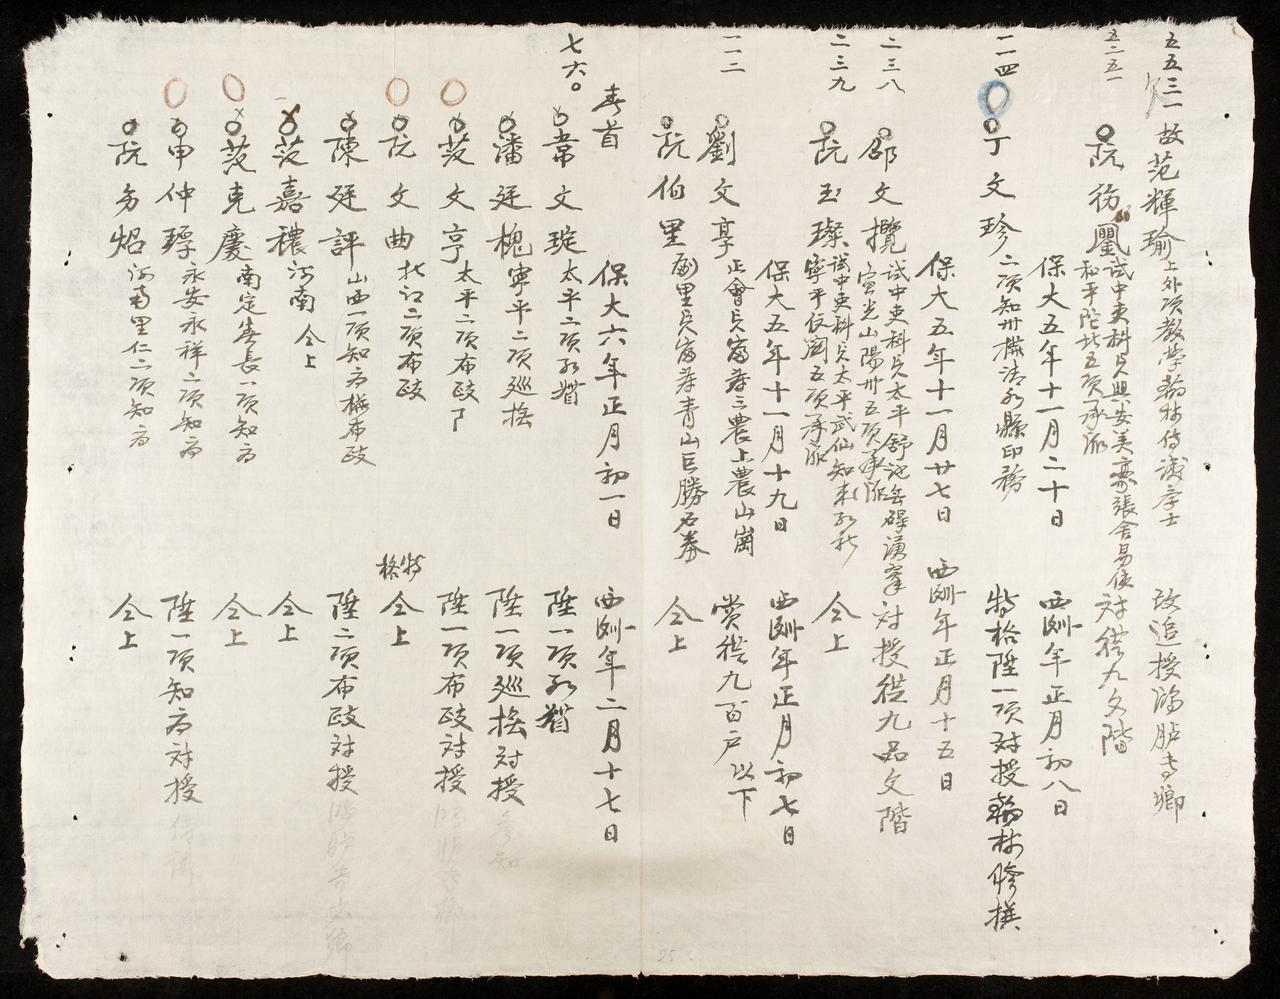 五五三一
故范輝瑜
上外項教学翰林侍讀学士
改追授鴻胪寺卿
五二五一
阮
試中吏科員興安美豪張舍易俠
和平陀北五項承派
対從九文階
保大五年十一月二十日
西曆年正月初八日
二一四
丁文珍
二項知州攝清水縣印務
特格陞一項対授翰林修撰
保大五年十一月廿七日
西曆年正月十五日
二三八
邵文攬
試中吏科員太平舒池
宣光山陽州五項承派
対授從九品文階
二三九
阮玉璨
試中吏科員太平武仙知来
寧平五項承派
仝上
保大五年十一月十九日
西曆年正月初七日
一一二
劉文享
正會員富寿三農上農山崗
賞從九百戸以下
阮伯里
副里員富寿青山巨勝石券
仝上
春首
保大六年正月初一日
西曆年二月十七日
七六〇
常文璇
太平二項
陞一項
潘廷槐
寧平二項巡撫
陞一項巡撫対授
参知
范文亨
太平二項布政
陞一項布政対授
鴻胪寺卿
阮文曲
北江二項布政
特格
仝上
陳廷評
山西一項知府攝布政
陞二項布政対授
鴻胪寺少卿
范嘉穠
河南
仝上
仝上
范克慶
南定春長一項知府
仝上
申仲
永安永祥二項知府
陞一項知府対授
侍講
阮多炤
河南里仁二項知府
仝上
25